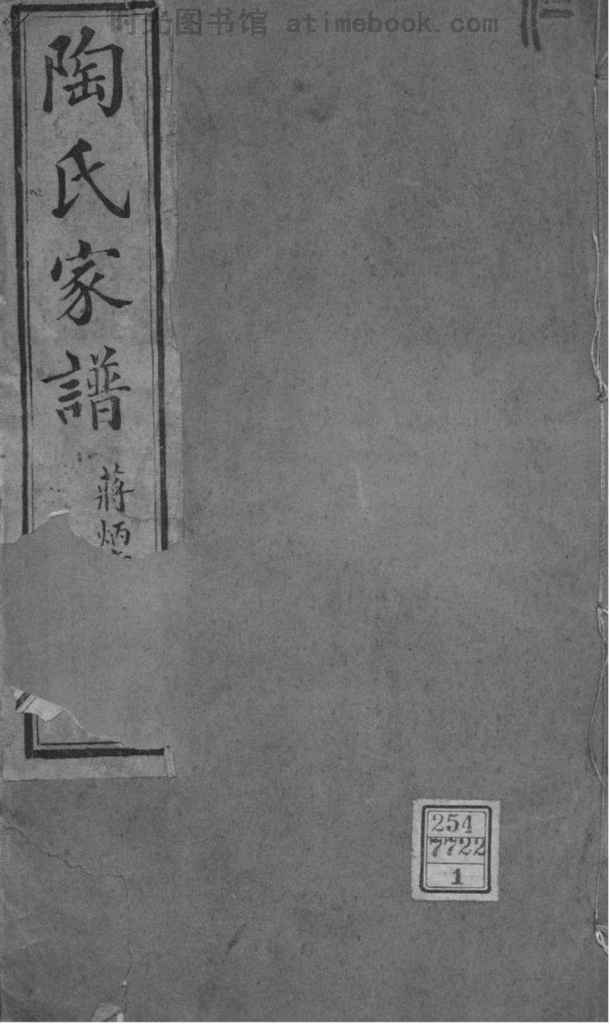 时光图书馆 atimebook.com
陶氏家譜
蔣炳
254
7722
1